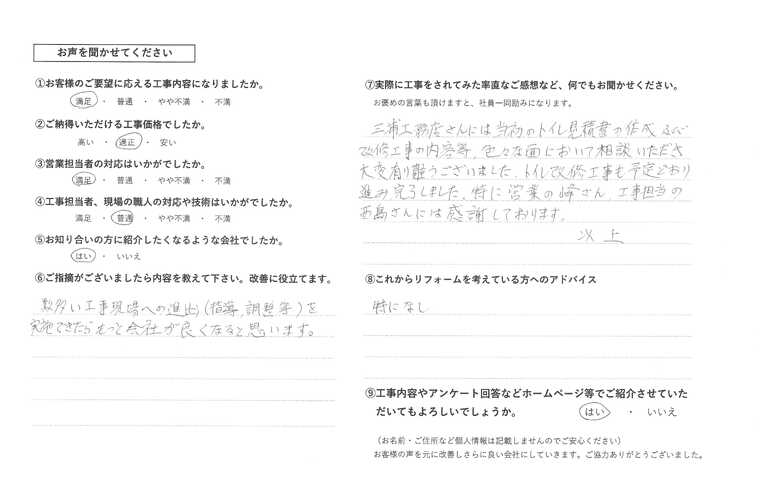 お声を聞かせてください
①お客様のご要望に応える工事内容になりましたか。
満足 ・ 普通 ・ やや不満 ・ 不満
②ご納得いただける工事価格でしたか。
高い ・ 適正 ・ 安い
③営業担当者の対応はいかがでしたか。
満足 ・ 普通 ・ やや不満 ・ 不満
④工事担当者、現場の職人の対応や技術はいかがでしたか。
満足 ・ 普通 ・ やや不満 ・ 不満
⑤お知り合いの方に紹介したくなるような会社でしたか。
はい ・ いいえ
⑥ご指摘がございましたら内容を教えて下さい。改善に役立てます。
数多い工事現場への進出(指導、調整等)を
実施できたらもっと会社が良くなると思います。
⑦実際に工事をされてみた率直なご感想など、何でもお聞かせください。
お褒めの言葉も頂けますと、社員一同励みになります。
三浦工務店さんには当初のトイレ見積書の作成及び
改修工事の内容等、色々な面において相談いただき
大変有り難うございました。トイレ改修工事も予定どおり
進み完了しました。特に営業の さん、工事担当の
西島さんには感謝しております。
以上
⑧これからリフォームを考えている方へのアドバイス
特になし
⑨工事内容やアンケート回答などホームページ等でご紹介させていた
だいてもよろしいでしょうか。 はい ・ いいえ
(お名前・ご住所など個人情報は記載しませんのでご安心ください)
お客様の声を元に改善しさらに良い会社にしていきます。ご協力ありがとうございました。